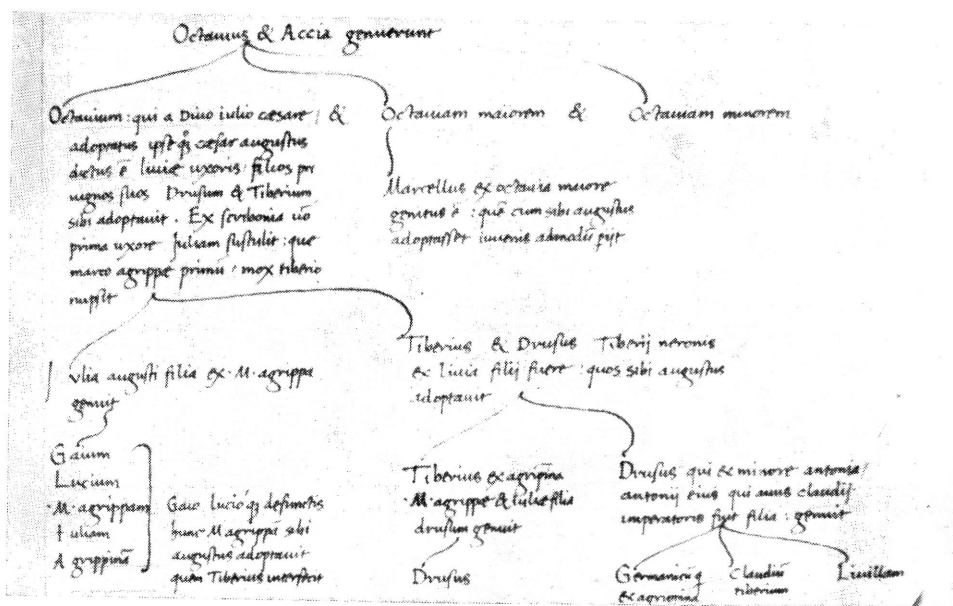 Octauius & Accia genuerunt
Octauium : qui a Diuo iulio cæsare / &
adoptatus ipse q̨ cæsar augustus
dictus ē liuie uxoris filios pri
uignos suos Drusum & Tiberium
sibi adoptauit . Ex scribonia uō
prima uxore Iuliam sustulit : que
marco agrippe primū / mox tiberio
nupsit
Octauiam maiorem &
Octauiam minorem
Marcellus ex octauia maiore
genitus ē : quē cum sibi augustus
adoptasset iuuenis admodū pijt
Iulia augusti filia ex · M · agrippa
genuit
Tiberius & Drusus Tiberij neronis
ex liuia filij fuere : quos sibi augustus
adoptauit
Gaium
Lucium
· M · agrippam
Iuliam
Agrippinā
Gaio lucio q̨ defunctis
hunc M agrippā sibi
augustus adoptauit
quem Tiberius interfecit
Tiberius ex agripina
· M · agrippe & Iulie filia
drusum genuit
Drusus
Drusus qui ex minore antonia /
antonij eius qui auus claudij
imperatoris fuit filia : genuit
Germanicū q
ex agripina
Claudiū
tiberium
Liuillam